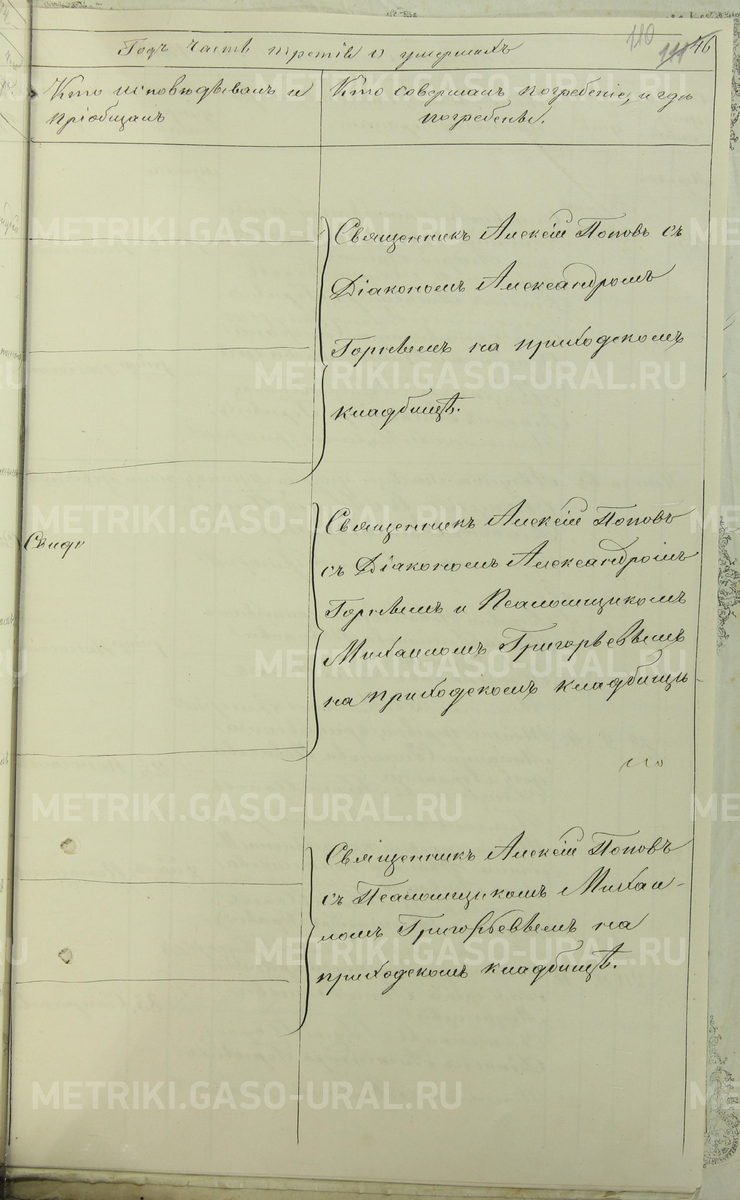 110
46
Годъ Часть третія о умершихъ
Кто исповѣдывалъ и
пріобщалъ
Кто совершалъ погребеніе, и гдѣ
погребены.
Священникъ Алексѣй Поповъ съ
Діакономъ Александромъ
на приходскомъ
кладбищѣ.
Священникъ Алексѣй Поповъ
съ Діакономъ Александромъ
и Псаломщикомъ
Михаиломъ Григорьевымъ
на приходскомъ кладбищѣ
Священникъ Алексѣй Поповъ
съ Псаломщикомъ Михаи-
ломъ Григорьевымъ на
приходскомъ кладбищѣ.
METRIKI.GASO-URAL.RU